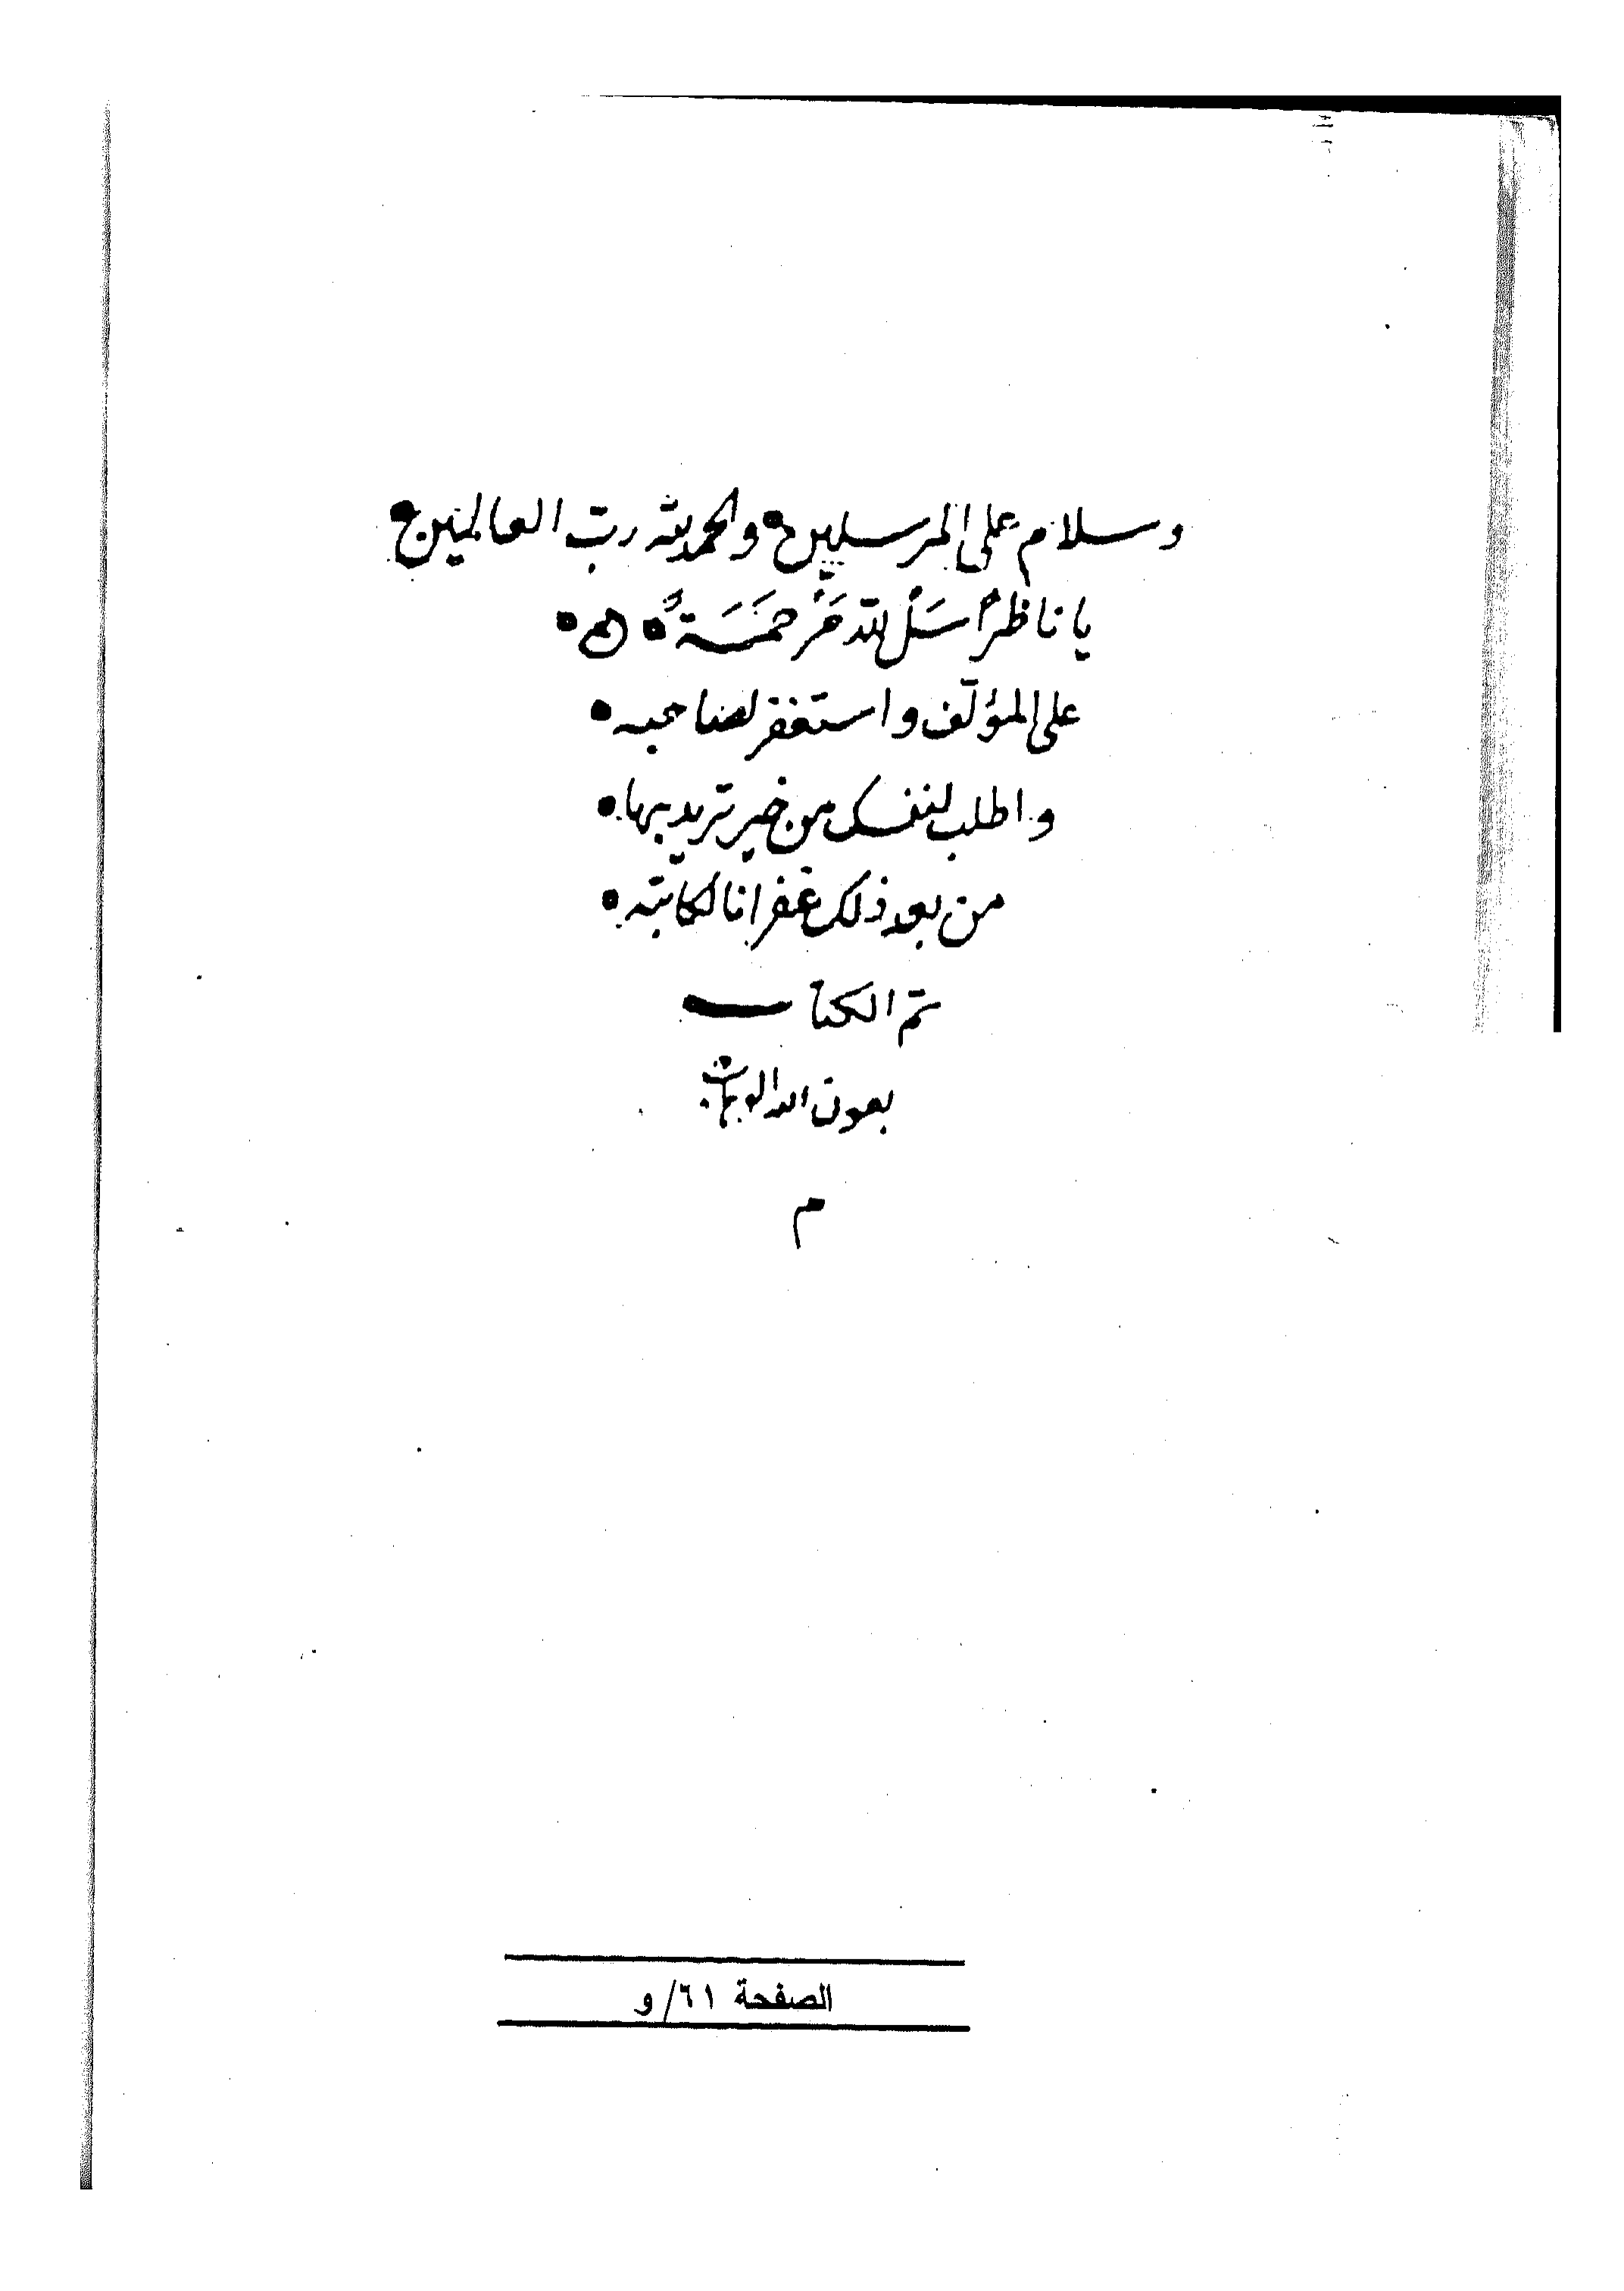 وسلام على المرسلين والحمد لله رب العالمين
يا ناظرًا سَلْ لله مَرْحَمَةً
على المؤلّف واستغفر لصاحبه
واطلب لنفسك من خير تريد بها
من بعد ذلك غفرانا لكاتبه
تم الكتاب
بعون الله الوهاب
م
الصفحة ٦١/و